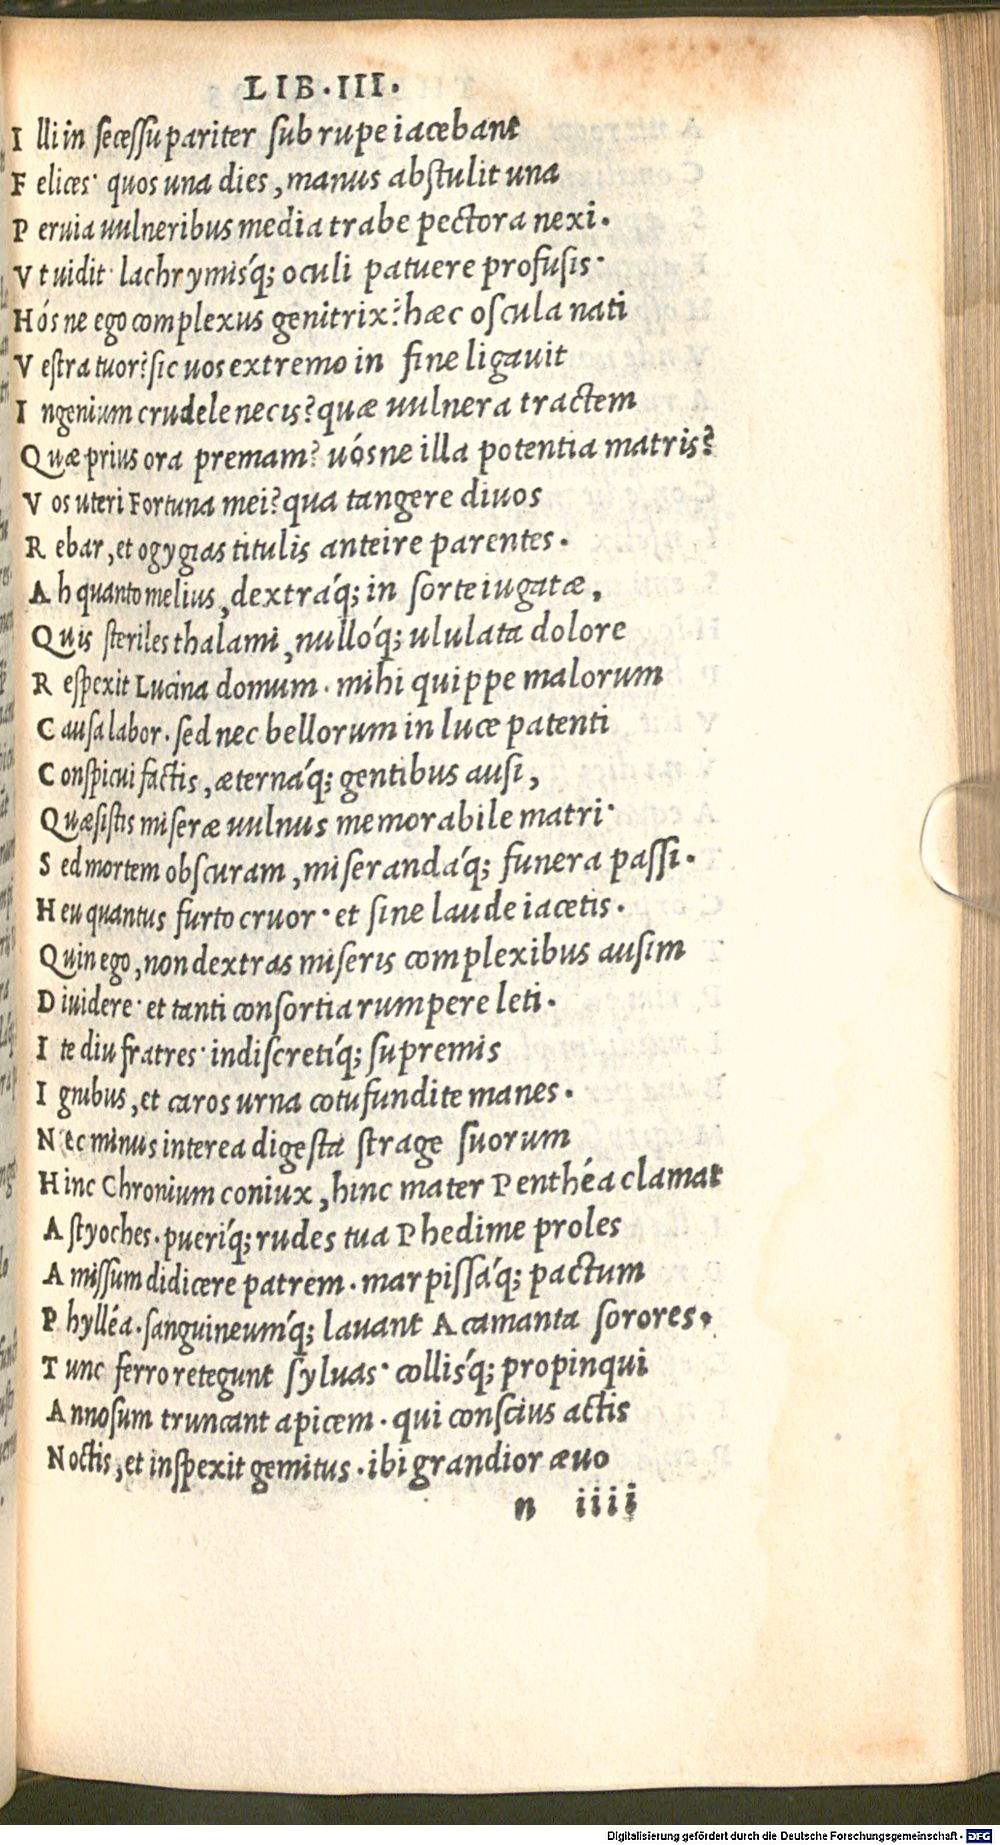 LIB.III.
I lli in secessu pariter sub rupe iacebant
F elices· quos una dies, manus abstulit una
P eruia uulneribus media trabe pectora nexi.
V t uidit· lachrymis'q; oculi patuere profusis·
H ós ne ego complexus genitrix? hæc oscula nati
V estra tuor? sic uos extremo in fine ligauit
I ngenium crudele necis? quæ uulnera tractem
Q uæ prius ora premam? uósne illa potentia matris?
V os uteri Fortuna mei? qua tangere diuos
R ebar, et ogygias titulis anteire parentes.
A h quanto melius, dextrá'q; in sorte iugatæ,
Q uis steriles thalami, nulló'q; ululata dolore
R espexit Lucina domum. mihi quippe malorum
C ausa labor. sed nec bellorum in luce patenti
C onspicui factis, æterná'q; gentibus ausi,
Q uæsistis miseræ uulnus memorabile matri·
S ed mortem obscuram, miserandá'q; funera passi.
H eu quantus furto cruor· et sine laude iacetis.
Q uin ego, non dextras miseris complexibus ausim
D iuidere· et tanti consortia rumpere leti.
I te diu fratres· indiscretí'q; supremis
I gnibus, et caros urna cōfufundite manes.
N ec minus interea digesta strage suorum
H inc Chronium coniux, hinc mater Penthéa clamat
A styoches. puerí'q; rudes tua Phedime proles
A missum didicere patrem. marpissá'q; pactum
P hylléa. sanguineum'q; lauant Acamanta sorores.
T unc ferro retegunt syluas· collis'q; propinqui
A nnosum truncant apicem. qui conscius actis
N octis, et inspexit gemitus. ibi grandior æuo
n iiii
Digitalisierung gefördert durch die Deutsche Forschungsgemeinschaft - DFG